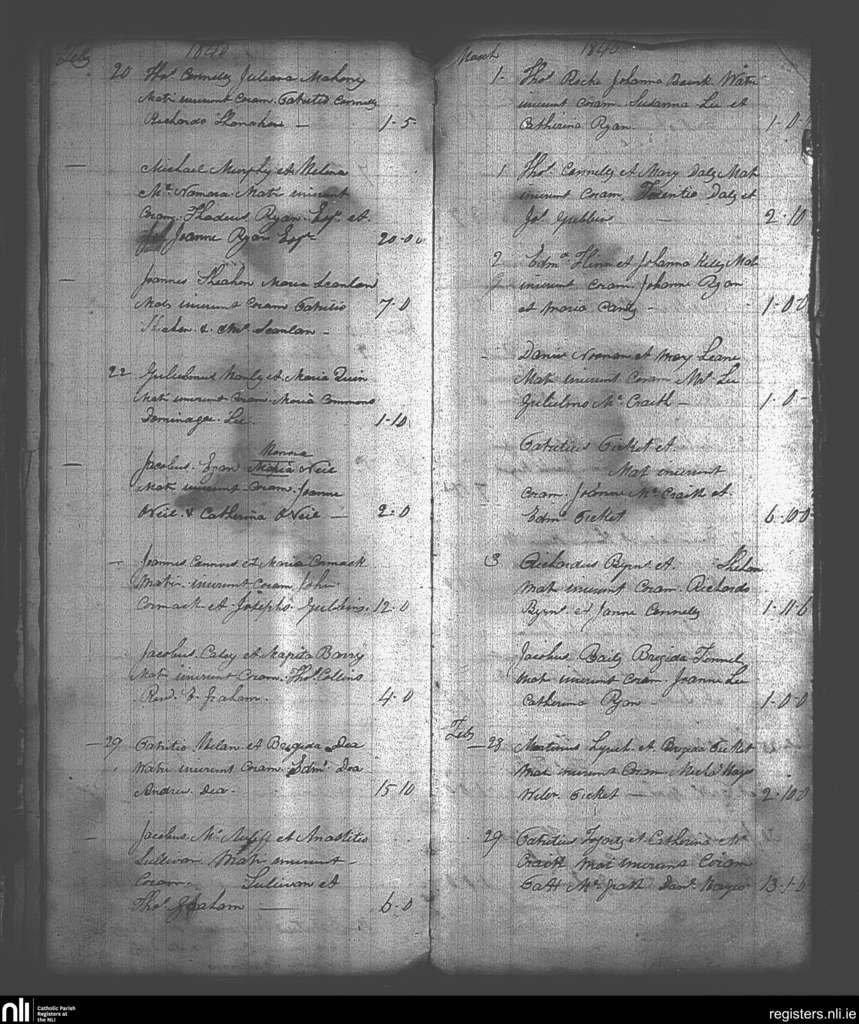 Feby 1840
20 Thos Connelly Juliana Mahony
Mati inierunt Coram Patritio Connelly
Richardo Shanahan — 1-5-
— Michael Murphy et Helena
Mc Namara Mati inierunt
Coram Thadeus Ryan Esqr et
Joanne Ryan Esqr 20-0-0
— Joannes Sheahan Maria Scanlan
Mati inierunt Coram Patritio 7-0
Sheahan & Scanlan -
22 Gulielmus Manly et Maria Quin
Mati inierunt Coram Maria Commons
Lee. 1-10
Honora
— Jacobus Egan Maria Neil
Mati inierunt Coram Joanne
O Neil & Catherina O Neil — 2-0
— Joannes Connors et Maria Cormack
Matri inierunt Coram John
Cormack et Josepho Gubbins. 12-0
Jacobus Caley et Margrita Barry
Mati inierunt Coram Thos Collins
Revd Graham. 4-0
— 29 Patritio Helan et Brigida Dea
Matri inierunt Coram Edmd Dea
Andrew Dea. 15-10
— Jacobus Mc Auliff et Anastitia
Sullivan Mati inierunt -
Coram. Sullivan et
Thos Graham — 6-0
March 1840
1- Thos Roche Johanna Bourk Matri
inierunt Coram Susanna Lee et
Catherina Ryan 1-0-
1 Thos Connelly et Mary Daly Mati
inierunt Coram Terentio Daly et
Jos Gubbins — 2-10
2 Edmd Flinn et Johanna Kiley Mat
inierunt Coram Johanne Ryan
et Maria Canty - 1-0-0
- Daniel Noonan et Mary Leane
Mati inierunt Coram Lee
Gulielmo Mc Craith — 1-0-
Patritius Ticket et
Mat inierunt
Coram Joanne Mc Craith et
Edmd Ticket 6-10-0
3 Richardus Byrns et Shelan
Mat inierunt Coram Richardo
Byrns et Janne Connelly 1-11-6
Jacobus Baily Brigida Fennel
Mat inierunt Coram Joanne Lee
Catherina Ryan - 1-0-0
Feby
— 28 Martinus Lynch et Brigida Ticket
Mat inierunt Coram Michl Hayes
Ticket — 2-10-0
29 Patritius Fogarty et Catherina Mc
Craith Mat inierunt Coram
Patt Mc Grath Danl Hayes 13-1-6
nli Catholic Parish
Registers at
the NLI
registers.nli.ie